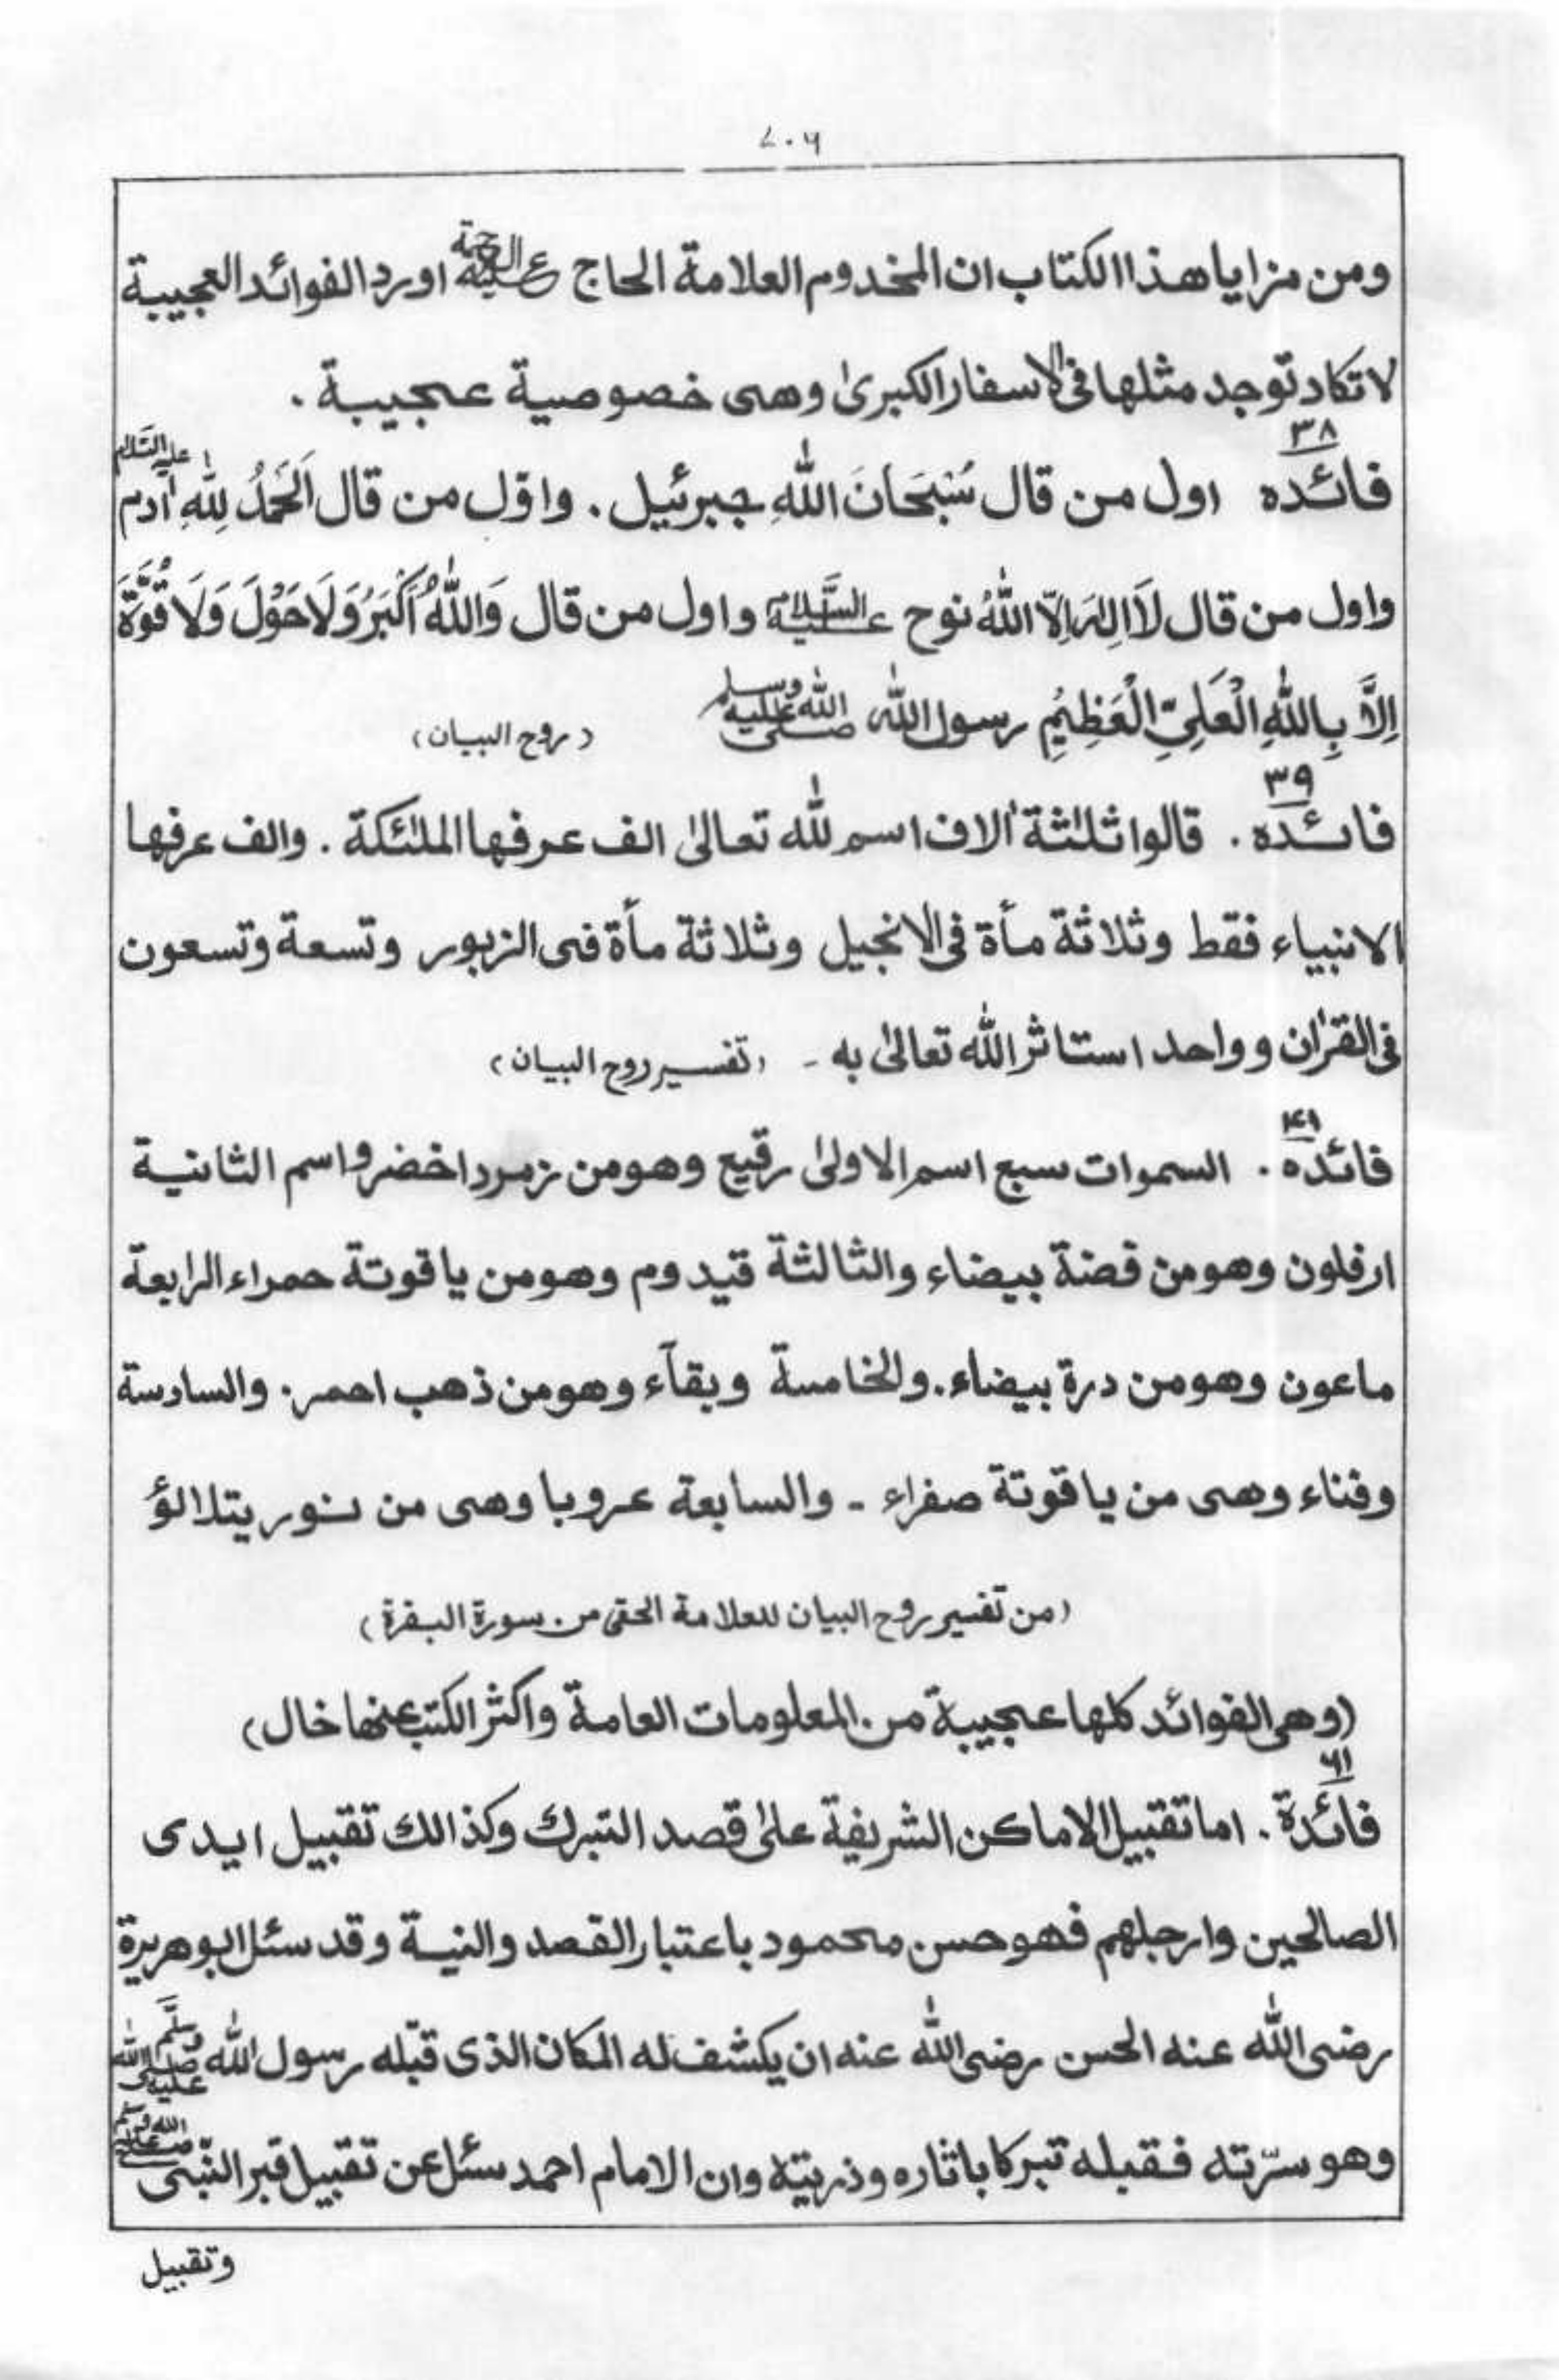 ۷۰۶
ومن مزايا هذا الكتاب ان المخدوم العلامة الحاج عليه الرحمة اورد الفوائد العجيبة
لا تكاد توجد مثلها فى الاسفار الكبرىٰ وهى خصوصية عجيبة .
۳۸
فائده اول من قال سُبْحَانَ اللهِ جبرئيل . واوّل من قال اَلْحَمْدُ لِلّٰهِ اٰدم عليه السّلام
واول من قال لَا اِلٰهَ اِلَّا اللهُ نوح عليه السَّلام واول من قال وَاللهُ اَكْبَرُ وَلَا حَوْلَ وَلَا قُوَّةَ
اِلَّا بِاللهِ الْعَلِىِّ الْعَظِيْمِ رسول الله صلى الله عليه وسلم (روح البيان)
۳۹
فائده . قالوا ثلٰثة اٰلاف اسم لله تعالىٰ الف عرفها الملٰئكة . والف عرفها
الانبياء فقط وثلاثة مأة فى الانجيل وثلاثة مأة فى الزبور وتسعة وتسعون
فى القراٰن وواحد استاثر الله تعالىٰ به - (تفسير روح البيان)
۴۱
فائده . السموات سبع اسم الاولىٰ رقيع وهو من زمرد اخضر واسم الثانية
ارفلون وهو من فضة بيضاء والثالثة قيدوم وهو من ياقوتة حمراء الرابعة
ماعون وهو من درة بيضاء . والخامسة وبقآء وهو من ذهب احمر . والسادسة
وفناء وهى من ياقوتة صفراء - والسابعة عروبا وهى من نور يتلالؤ
(من تفسير روح البيان للعلامة الحقى من سورة البقرة)
(وهى الفوائد كلها عجيبة من المعلومات العامة واكثر الكتب عنها خال)
۶۱
فائدة . اما تقبيل الاماكن الشريفة علىٰ قصد التبرك وكذالك تقبيل ايدى
الصالحين وارجلهم فهو حسن محمود باعتبار القصد والنية وقد سئل ابو هريرة
رضى الله عنه الحسن رضى الله عنه ان يكشف له المكان الذى قبّله رسول الله صلى الله عليه وسلَّم
وهو سرّته فقبله تبركا باثاره وذريته وان الامام احمد سئل عن تقبيل قبر النّبى صلى الله عليه وسلم
وتقبيل